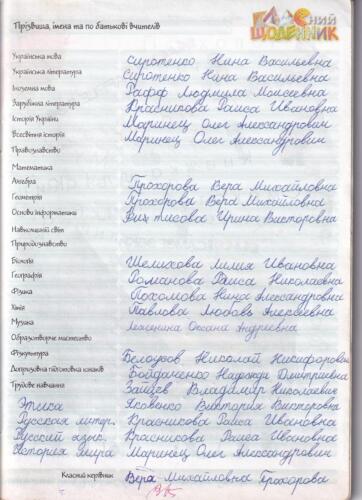 Прізвища, імена та по батькові вчителів
ЩОДЕННИК
Українська мова Сиротенко Нина Васильевна
Українська література Сиротенко Нина Васильевна
Іноземна мова Рафф Людмула Моисеевна
Зарубіжна література Красникова Раиса Ивановна
Історія України Маринец Олег Александрович
Всесвітня історія Маринец Олег Александрович
Правознавство
Математика
Алгебра Прохорова Вера Михайловна
Геометрія Прохорова Вера Михайловна
Основи інформатики Ирина Викторовна
Навколишній світ
Природознавство
Біологія Шелихова Лилия Ивановна
Географія Романова Раиса Николаевна
Фізика Пахомова Нина Александровна
Хімія Павлова Любовь Алексеевна
Музика Оксана Андреевна
Образотворче мистецтво
Фізкультура Белоусов Николай Никифорович
Допризовна підготовка юнаків Бойдаченко Надежда Дмитриевна
Трудове навчання Зайцев Владимир Николаевич
Этика Яковенко Виктория Викторовна
Русская литер. Красникова Раиса Ивановна
Русский язык. Красникова Раиса Ивановна
История мира Маринец Олег Александрович
Класний керівник Вера Михайловна Прохорова